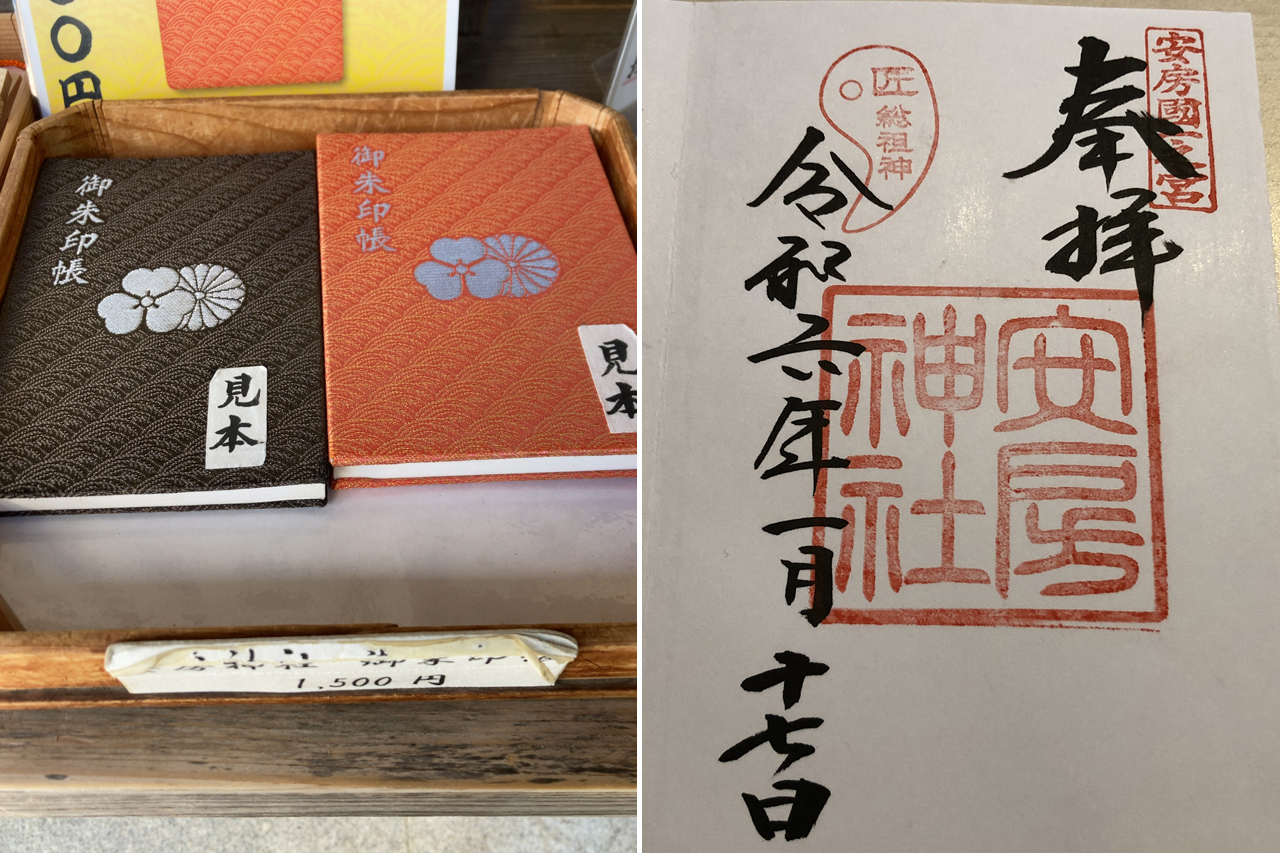 00円
御朱印帳
御朱印帳
見本
見本
1,500円
安房國一之宮
奉拝
匠
総祖神
令和六年一月十七日
安房
神社